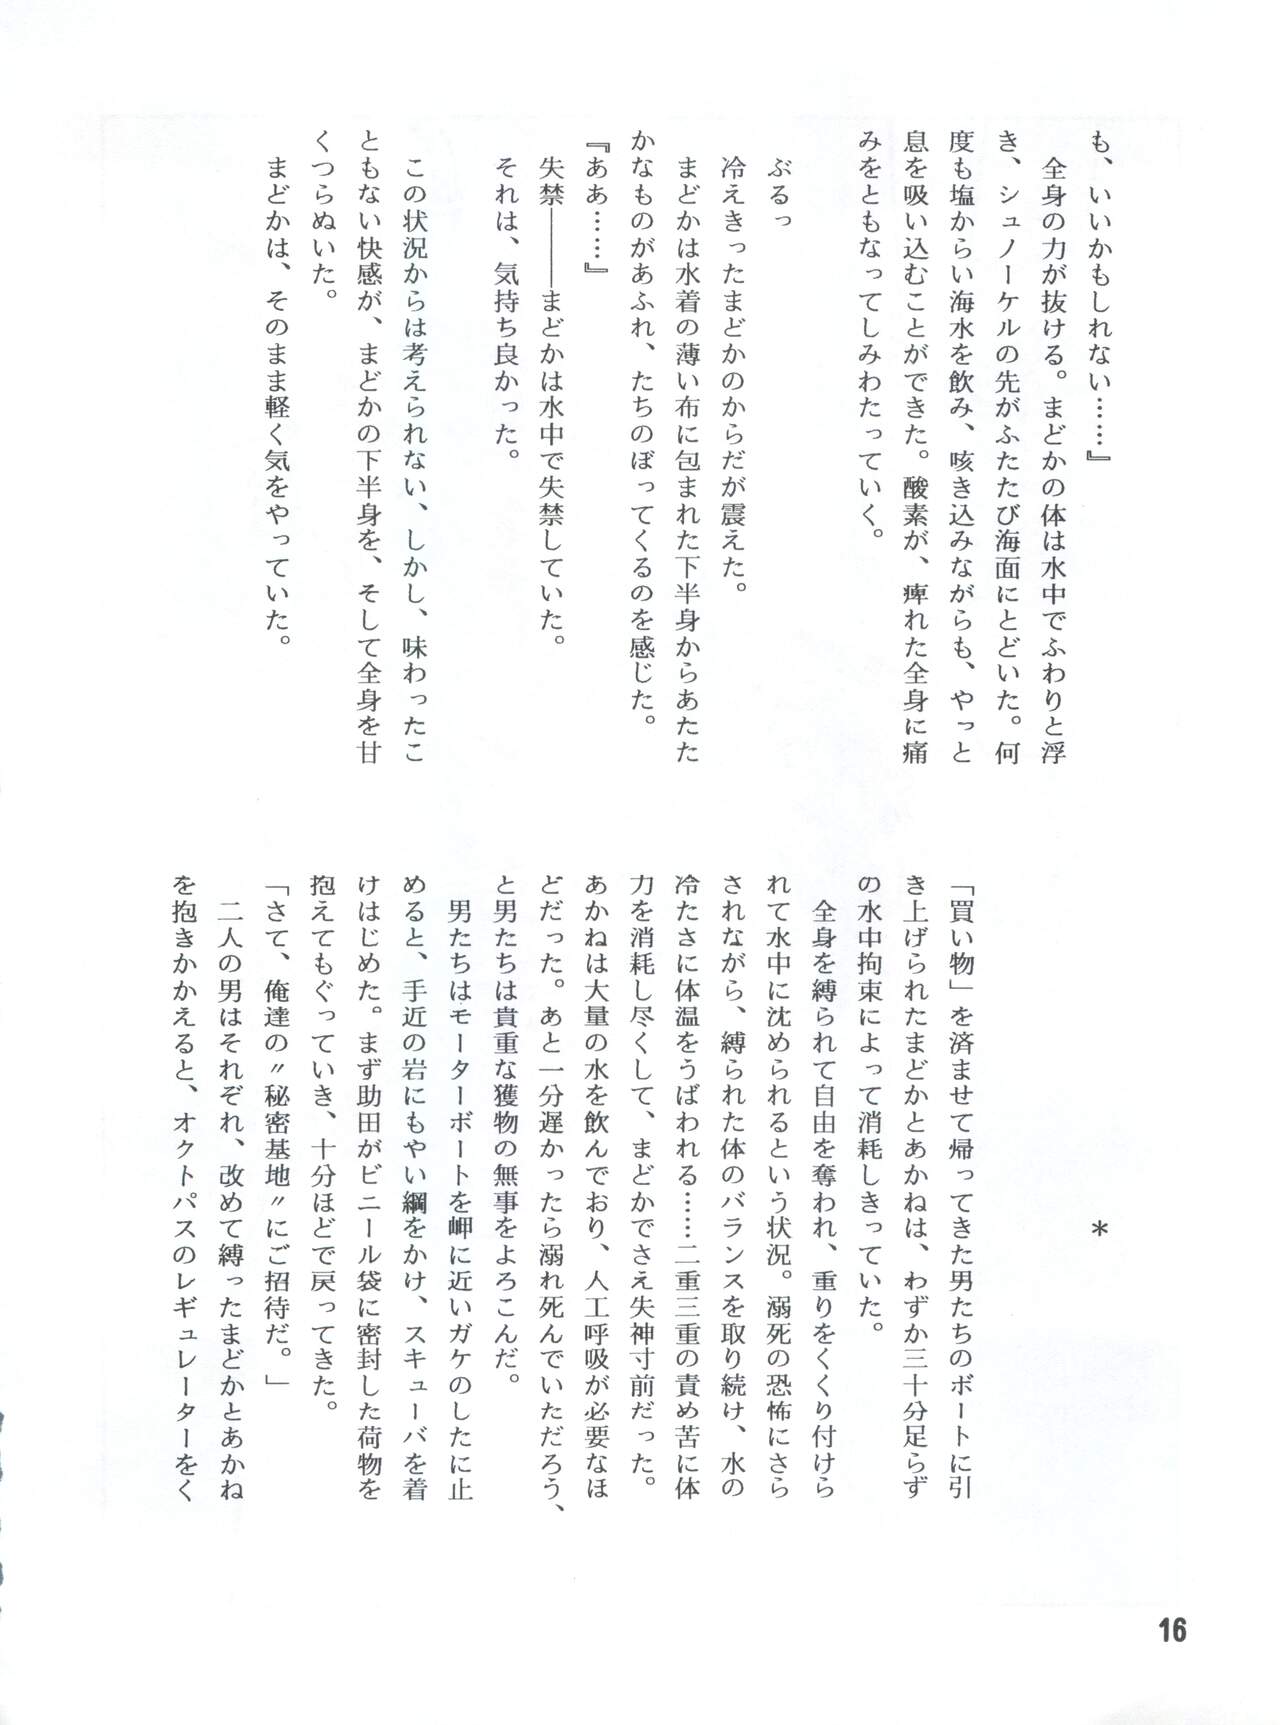 も、いいかもしれない……』
全身の力が抜ける。まどかの体は水中でふわりと浮
き、シュノーケルの先がふたたび海面にとどいた。何
度も塩からい海水を飲み、咳き込みながらも、やっと
息を吸い込むことができた。酸素が、痺れた全身に痛
みをともなってしみわたっていく。
ぶるっ
冷えきったまどかのからだが震えた。
まどかは水着の薄い布に包まれた下半身からあたた
かなものがあふれ、たちのぼってくるのを感じた。
『ああ……』
失禁――まどかは水中で失禁していた。
それは、気持ち良かった。
この状況からは考えられない、しかし、味わったこ
ともない快感が、まどかの下半身を、そして全身を甘
くつらぬいた。
まどかは、そのまま軽く気をやっていた。
＊
「買い物」を済ませて帰ってきた男たちのボートに引
き上げられたまどかとあかねは、わずか三十分足らず
の水中拘束によって消耗しきっていた。
全身を縛られて自由を奪われ、重りをくくり付けら
れて水中に沈められるという状況。溺死の恐怖にさら
されながら、縛られた体のバランスを取り続け、水の
冷たさに体温をうばわれる……二重三重の責め苦に体
力を消耗し尽くして、まどかでさえ失神寸前だった。
あかねは大量の水を飲んでおり、人工呼吸が必要なほ
どだった。あと一分遅かったら溺れ死んでいただろう、
と男たちは貴重な獲物の無事をよろこんだ。
男たちはモーターボートを岬に近いガケのしたに止
めると、手近の岩にもやい綱をかけ、スキューバを着
けはじめた。まず助田がビニール袋に密封した荷物を
抱えてもぐっていき、十分ほどで戻ってきた。
「さて、俺達の〃秘密基地〃にご招待だ。」
二人の男はそれぞれ、改めて縛ったまどかとあかね
を抱きかかえると、オクトパスのレギュレーターをく
16